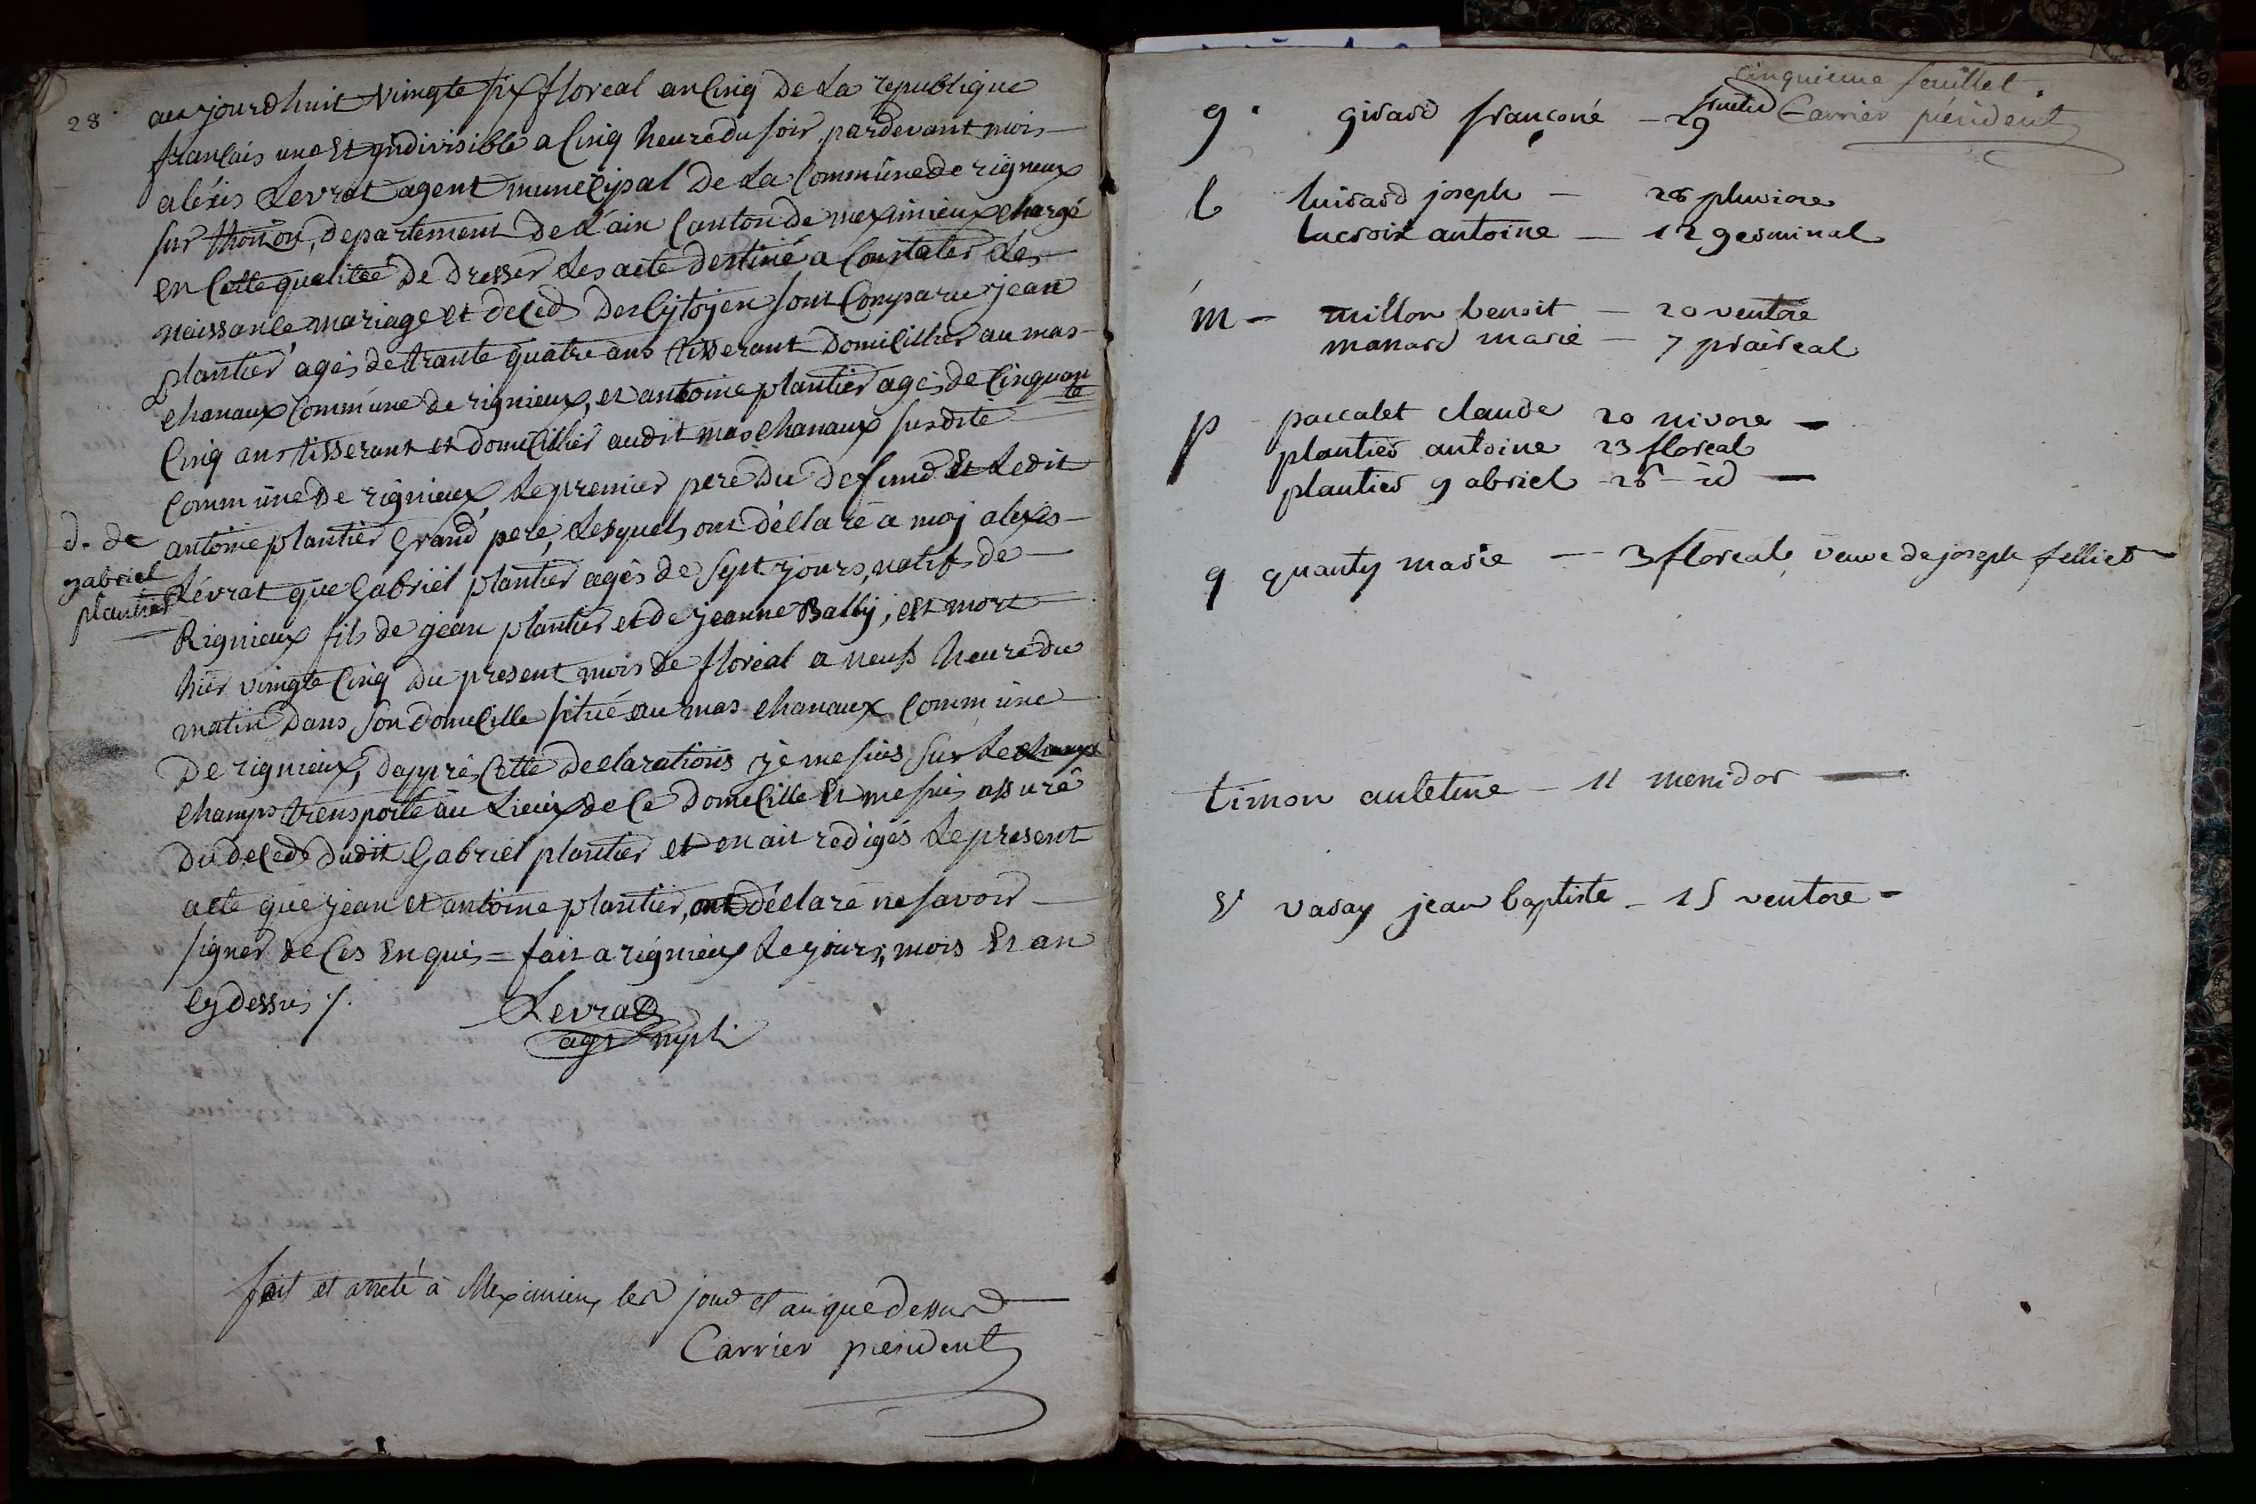 28
aujourdhuit vingte six floreal an Cinq de La republique
francais une Et yndivisible a Cinq heure du soir pardevant moi
aléxis Levrat agent municipal de La Commune de rigneux
sur thoizon, departement de L'ain Canton de meximieux Chargé
en Cette qualitée de Dresser Les acte destiné a Constater Les
naissance mariage et deced des Cytoyen sont Comparu jean
plantier agés de trante quatre ans tisserant domicillier au mas
chanaux Commune de rignieux, et antoine plantier agés de Cinquan
te
Cinq ans tisserant et domicillier audit mas chanaux susdite
Commune de rignieux Le premier pere du defund Et Ledit
antoine plantier grand pere, Lesquels ont déllaré a moy alexis
d. de
gabriel
plantier
Lévrat que Gabriel plantier agés de sept jours, natif de
Rignieux fils de jean plantier et de jeanne Bally, est mort
hier vingte Cinq du present mois de floréal a neuf heure du
matin dans son domicille situé au mas chanaux Commune
De rignieux, dapprés Cette declarations je me suis sur Le
champs transporté au Lieux de Ce domicille Et me suis assuré
du deced dudit Gabriel plantier et en ait redigés Le present
acte que jean et antoine plantier, ont déclaré ne savoir
signer de Ces Enquis = fait a rignieux Le jours, mois Et an
Cy dessus /.
Levrat
agt mpl
fait et arreté à Meximieux les jour et an que dessus
Carrier président
cinquieme feuillet.
Carrier président
g. girard françoné - 29
l luisard joseph - 28 pluviose
lacroix antoine - 12 germinal
m - millon benoit - 20 ventose
manard marie - 7 praireal
p paccalet claude 20 nivose -
plantier antoine 23 floreal
plantier gabriel 26 - id -
q quanty marie - 3 floreal, veuve de joseph felliet
timon anletme - 11 mesidor
v vasay jean baptiste - 15 ventose -